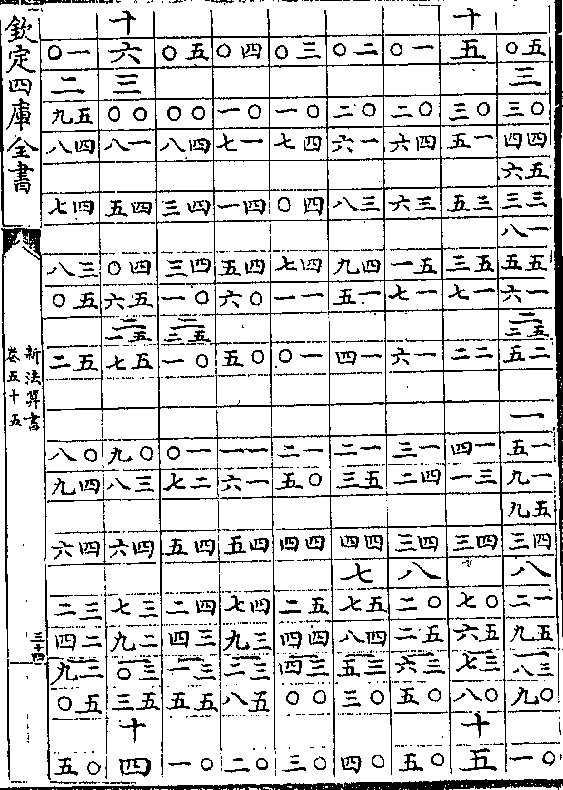 欽定四庫全書
新法算書
卷五十五
三十四
十 十
五〇 五 一〇 二〇 三〇 四〇 五〇 六 一〇
三 三 二
〇三 〇三 〇二 〇二 〇一 〇一 〇〇 〇〇 五九
四四 一五 四六 一六 四七 一七 四八 一八 四八
五六
三三 三五 三六 三八 四〇 四一 四三 四五 四七
一八
五五 五三 五一 四九 四七 四五 四三 四〇 三八
一六 一七 一七 一五 一一 〇六 〇一 五六 五〇
二 二 二
五三 五三 五一
二五 二二 一六 一四 一〇 〇五 〇一 五七 五二
一
一五 一四 一三 一二 一二 一一 一〇 〇九 〇八
一九 三一 四二 五三 〇五 一六 二七 三八 四九
五九
四三 四三 四三 四四 四四 四五 四五 四六 四六
八 八 七
一二 〇七 〇二 五七 五二 四七 四二 三七 三二
五九 五六 五二 四八 四四 三九 三四 二九 二四
三八 三七 三六 三五 三四 三二 三一 三〇 二九
〇九 〇八 〇五 〇三 〇〇 五八 五五 五三 五〇
十 十
〇一 五 〇五 〇四 〇三 〇二 〇一 四 〇五